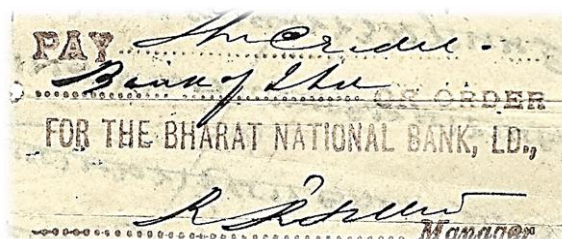 PAY The Credit
Bank of OR ORDER
FOR THE BHARAT NATIONAL BANK, LD.,
Manager